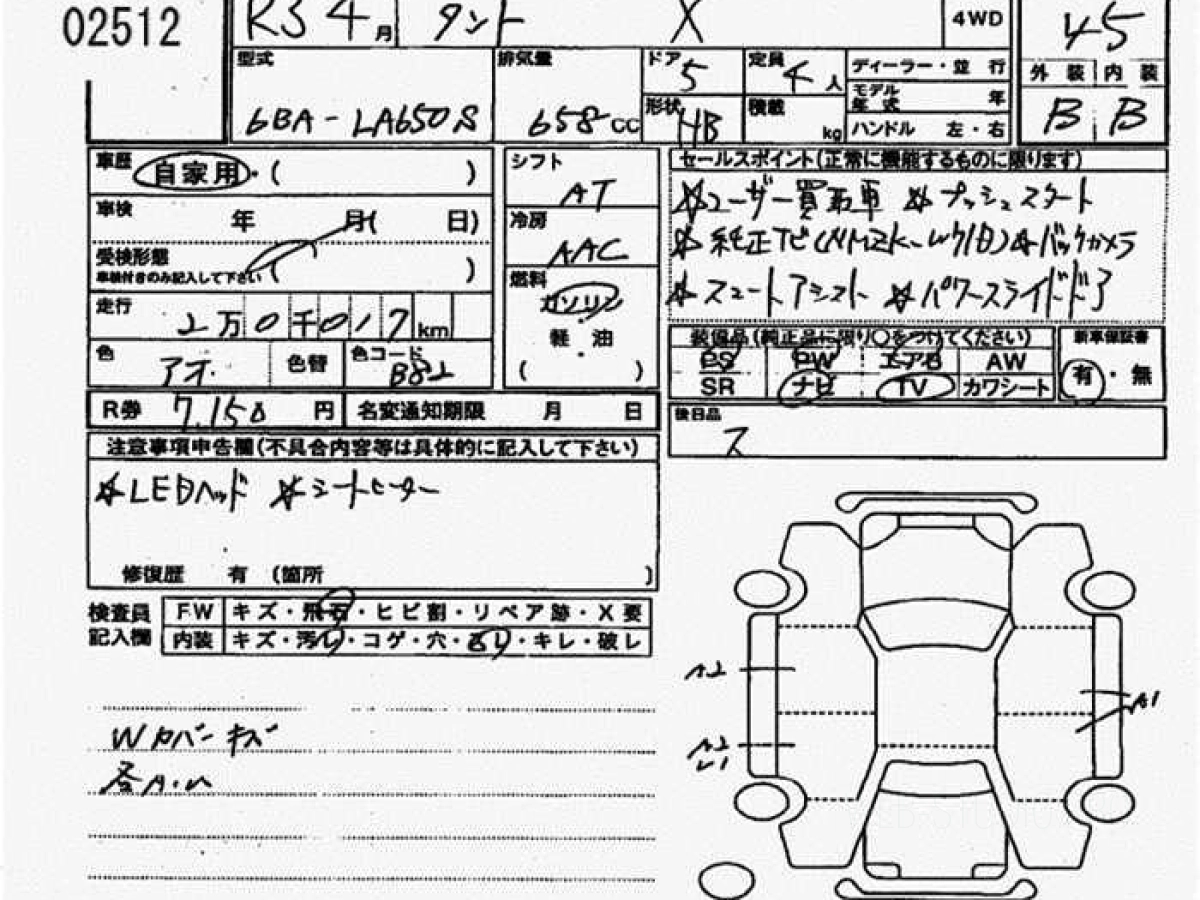 02512 R3 4月 タント X 4WD 45
型式 排気量 ドア 5 定員 4人 ディーラー・並 行 外 装 内 装
6BA-LA650S 658cc 形状 HB 積載 kg モデル年式 年 B B
ハンドル 左・右
車歴 自家用・( ) シフト AT セールスポイント(正常に機能するものに限ります)
車検 年 月( 日) 冷房 AAC ☆ユーザー買取車 ☆プッシュスタート
受検形態 ( ) ☆純正ナビ ☆バックカメラ
車検付きのみ記入して下さい
燃料 ガソリン ☆スマートアシスト ☆パワースライドドア
走行 2万0千017km 軽 油 装備品(純正品に限り〇をつけてください) 新車保証書
色 アオ 色替 色コード B82 ( ) PS PW エアB AW 有・無
SR ナビ TV カワシート
R券 7,150円 名変通知期限 月 日 後日品
ス
注意事項申告欄(不具合内容等は具体的に記入して下さい)
☆LEDヘッド ☆シートヒーター
修復歴 有 (箇所 )
検査員 FW キズ・飛石・ヒビ割・リペア跡・X要
記入欄 内装 キズ・汚レ・コゲ・穴・スレ・キレ・破レ
A2 A1
Wカバーキズ A2
各A・U U1